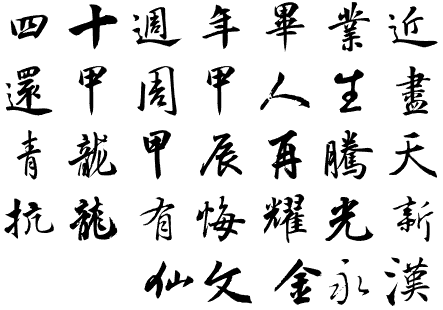 四十週年畢業近
還甲周甲人生盡
青龍甲辰再騰天
抗龍有悔耀光新
仙文 金永漢